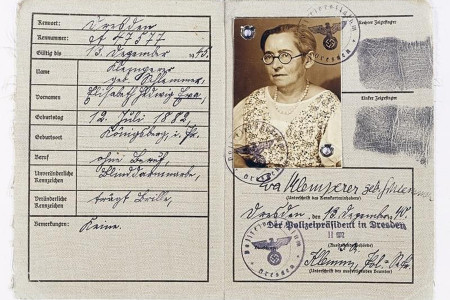 Kennort: Dresden
Kennummer: A 47577
Gültig bis 13. Dezember 1945.
Name Klemperer
geb. Schlemmer.
Vornamen Elisabeth Hedwig Eva,
Geburtstag 12. Juli 1882
Geburtsort Königsberg, i. Pr.
Beruf ohne Beruf,
Unveränderliche Kennzeichen Blinddarmnarbe,
Veränderliche Kennzeichen trägt Brille,
Bemerkungen: Keine.
Rechter Zeigefinger
Linker Zeigefinger
Eva Klemperer geb. Schlemmer
(Unterschrift des Kennkarteninhabers)
Dresden, den 13. Dezember 40.
Der Polizeipräsident in Dresden
(Ausstellungsbehörde)
(Unterschrift des ausfertigenden Beamten)
Polizeipräsidium
Dresden